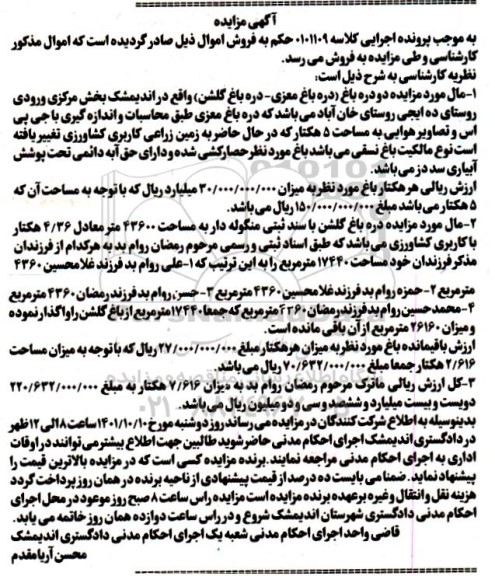 آگهی مزایده
به موجب پرونده اجرایی کلاسه ۰۱۰۱۱۰۹ حکم به فروش اموال ذیل صادر گردیده است که اموال مذکور
کارشناسی و طی مزایده به فروش می رسد.
نظریه کارشناسی به شرح ذیل است:
۱-مال مورد مزایده دو دره باغ (دره باغ معزی- دره باغ گلشن) واقع در اندیمشک بخش مرکزی ورودی
روستای ده ایجی روستای خان آباد می باشد که دره باغ معزی طبق محاسبات و اندازه گیری با جی پی
اس و تصاویر هوایی به مساحت ۵ هکتار که در حال حاضر به زمین زراعی کاربری کشاورزی تغییر یافته
است نوع مالکیت باغ نسقی می باشد باغ مورد نظر حصارکشی شده و دارای حق آبه دائمی تحت پوشش
آبیاری سد دز می باشد.
ارزش ریالی هر هکتار باغ مورد نظر به میزان ۳۰/۰۰۰/۰۰۰/۰۰۰ میلیارد ریال که با توجه به مساحت آن که
۵ هکتار می باشد مبلغ ۱۵۰/۰۰۰/۰۰۰/۰۰۰ ریال می باشد.
۲-مال مورد مزایده دره باغ گلشن با سند ثبتی منگوله دار به مساحت ۴۳۶۰۰ متر معادل ۴/۳۶ هکتار
با کاربری کشاورزی می باشد که طبق اسناد ثبتی و رسمی مرحوم رمضان روام بد به هر کدام از فرزندان
مذکر فرزندان خود مساحت ۱۷۴۴۰ مترمربع را به این ترتیب که ۱-علی روام بد فرزند غلامحسین ۴۳۶۰
مترمربع ۲-حمزه روام بد فرزند غلامحسین ۴۳۶۰ مترمربع ۳-حسن روام بد فرزند رمضان ۴۳۶۰ مترمربع
۴-محمدحسین روام بد فرزند رمضان ۴۳۶۰ مترمربع که جمعا ۱۷۴۴۰ مترمربع از باغ گلشن را واگذار نموده
و میزان ۲۶۱۶۰ مترمربع از آن باقی مانده است.
ارزش باقیمانده باغ مورد نظر به میزان هر هکتار مبلغ ۲۷/۰۰۰/۰۰۰/۰۰۰ ریال که با توجه به میزان مساحت
۲/۶۱۶ هکتار جمعا مبلغ ۷۰/۶۳۲/۰۰۰/۰۰۰ ریال می باشد.
۳-کل ارزش ریالی ماترک مرحوم رمضان روام بد به میزان ۷/۶۱۶ هکتار به مبلغ ۲۲۰/۶۳۲/۰۰۰/۰۰۰
دویست و بیست میلیارد و ششصد و سی و دو میلیون ریال می باشد.
بدینوسیله به اطلاع شرکت کنندگان در مزایده می رساند روز دوشنبه مورخ ۱۴۰۱/۱۰/۱۰ ساعت ۸ الی ۱۲ ظهر
در دادگستری اندیمشک اجرای احکام مدنی حاضر شوید طالبین جهت اطلاع بیشتر می توانند در اوقات
اداری به اجرای احکام مدنی مراجعه نمایند. برنده مزایده کسی است که در مزایده بالاترین قیمت را
پیشنهاد نماید. ضمنا می بایست ده درصد از قیمت پیشنهادی از ناحیه برنده در همان روز پرداخت گردد
هزینه نقل و انتقال و غیره بر عهده برنده مزایده است مزایده راس ساعت ۸ صبح روز موعود در محل اجرای
احکام مدنی دادگستری شهرستان اندیمشک شروع و در راس ساعت دوازده همان روز خاتمه می یابد.
قاضی واحد اجرای احکام مدنی شعبه یک اجرای احکام مدنی دادگستری اندیمشک
محسن آریامقدم